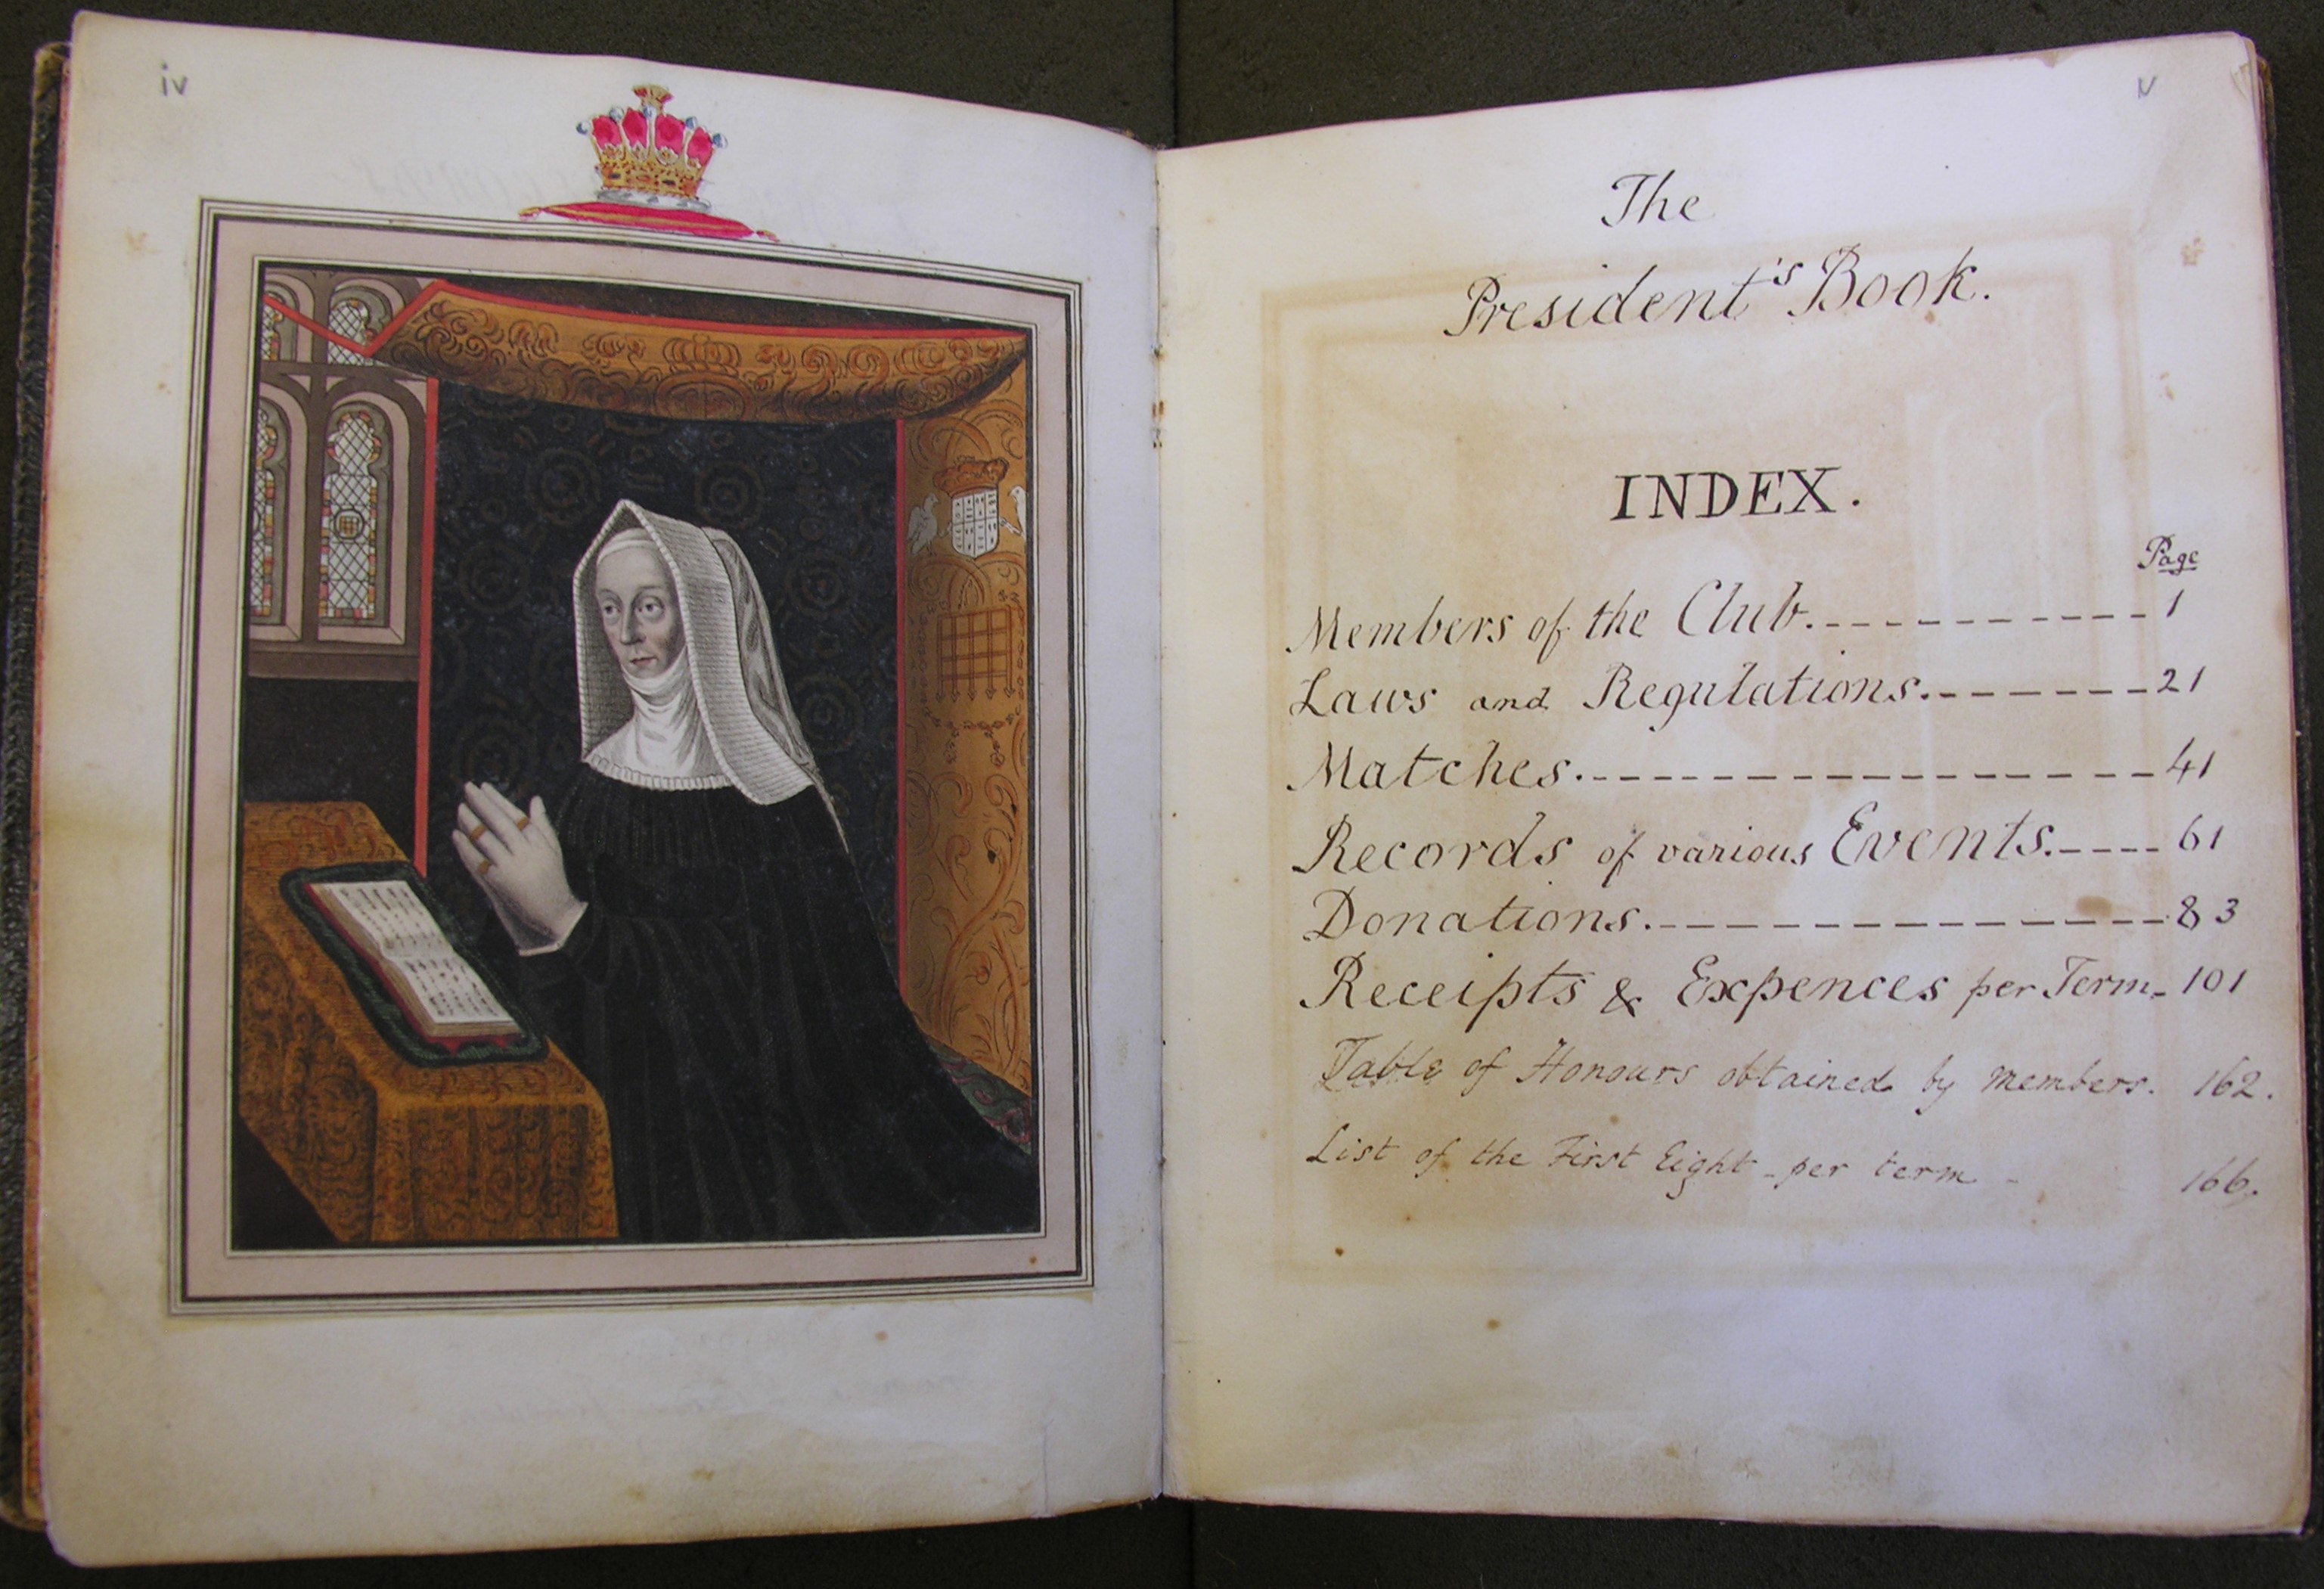 iv
v
The
President's Book.
INDEX.
Page
Members of the Club.----------- 1
Laws and Regulations.------- 21
Matches.----------------- 41
Records of various Events.---- 61
Donations.--------------- 83
Receipts & Expences per Term- 101
Table of Honours obtained by members. 162.
List of the First Eight - per term - 166.